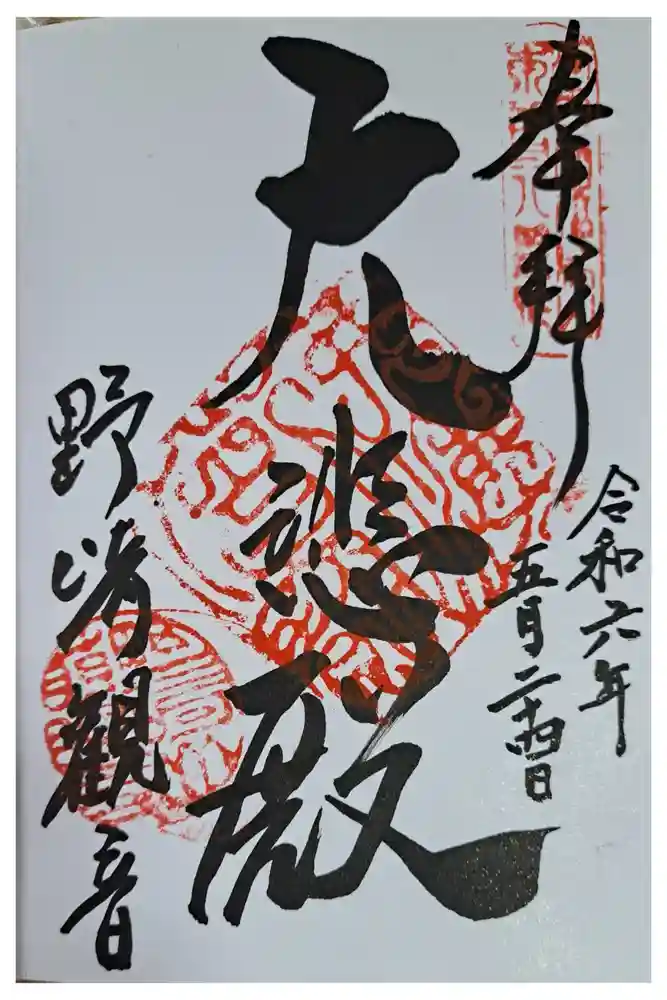 奉拝
令和六年
五月二十四日
大悲殿
野崎観音